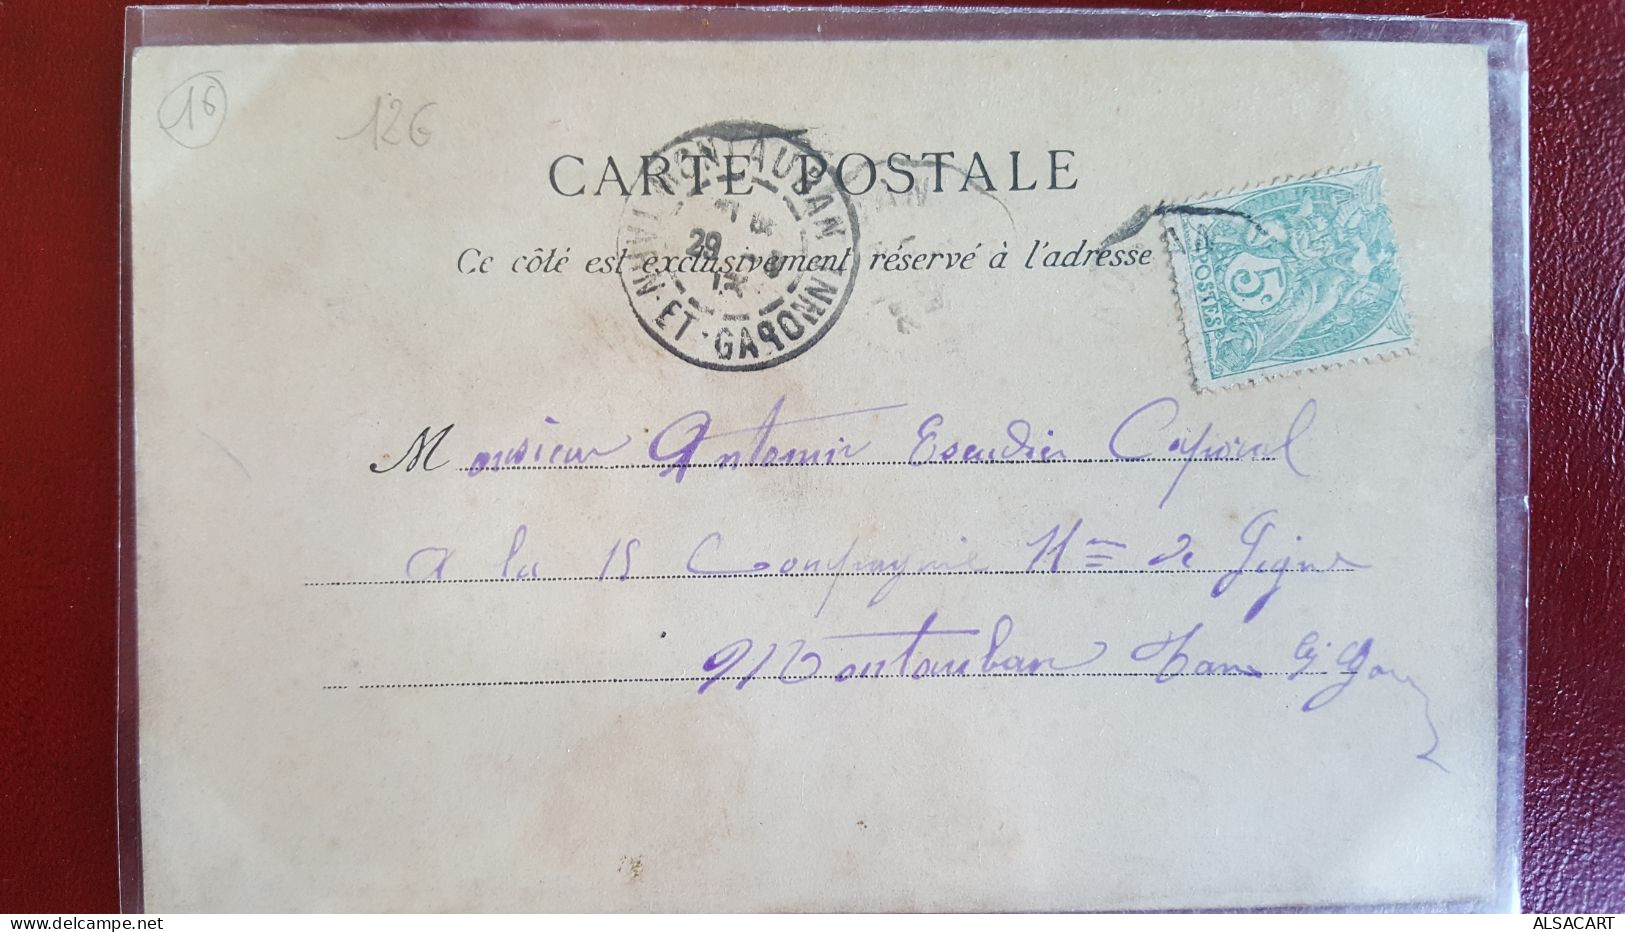 16
126
CARTE POSTALE
MONTAUBAN
29
TARN-ET-GARONNE
Ce côté est exclusivement réservé à l'adresse
5c
POSTES
Monsieur Antonin Escudier Caporal
A la 15 Compagnie 11me de Ligne
Montauban Tarn & Gar
ALSACART